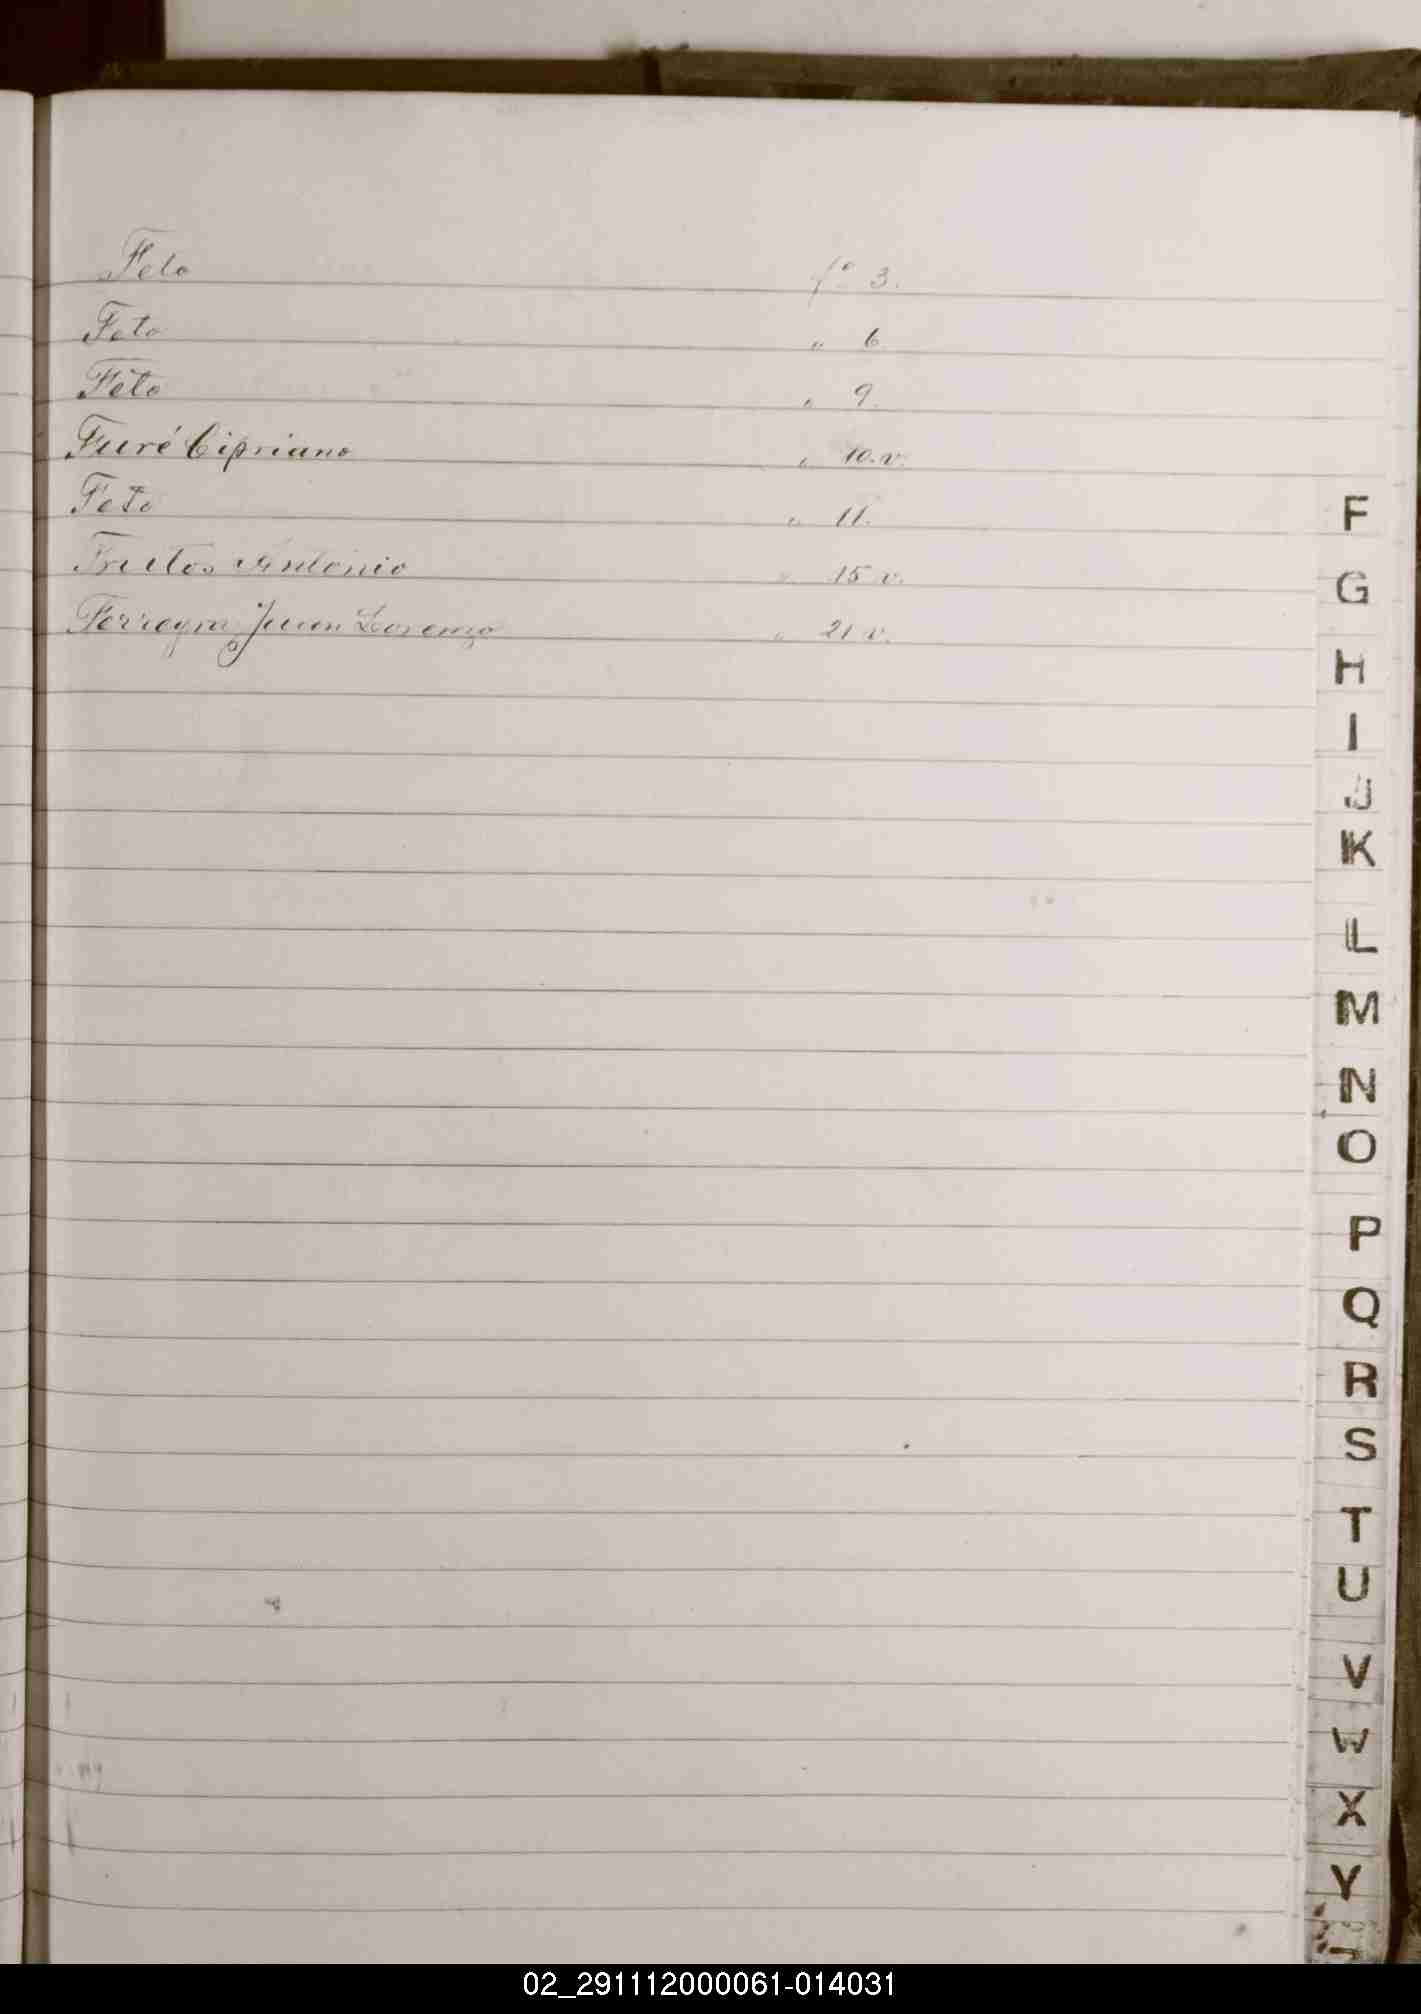 Feto fo 3.
Feto " 6
Feto " 9.
Furé Cipriano " 10.v.
Feto " 11.
Frutos Antonio " 15 v.
Ferreyra Juan Lorenzo " 21 v.
F
G
H
I
J
K
L
M
N
O
P
Q
R
S
T
U
V
W
X
Y
02_291112000061-014031